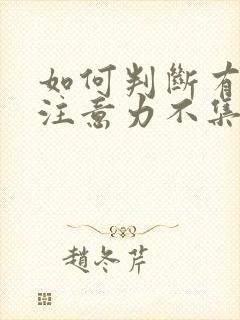 如何判斷有
注意力不集
趙冬芹